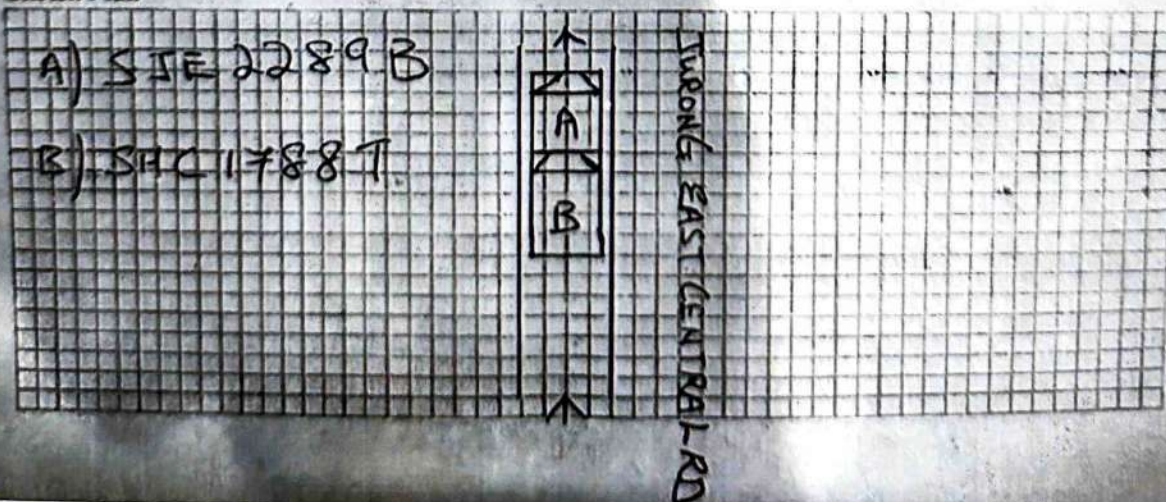 A) SJE 2289 B
B) SHC 1788 T
A
B
JURONG EAST CENTRAL RD